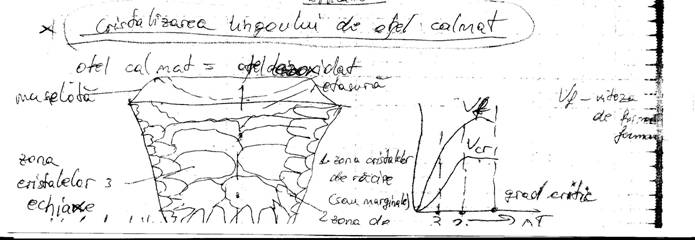 Cristalizarea lingoului de oțel calmat
oțel calmat = oțel dezoxidat
maselotă
retasură
1
zona
cristalelor 3
echiaxe
1 zona cristalelor
de răcire
(sau marginale)
2 zona de
Vf
Vcr
grad critic
3 2
ΔT
Vf - viteza
de